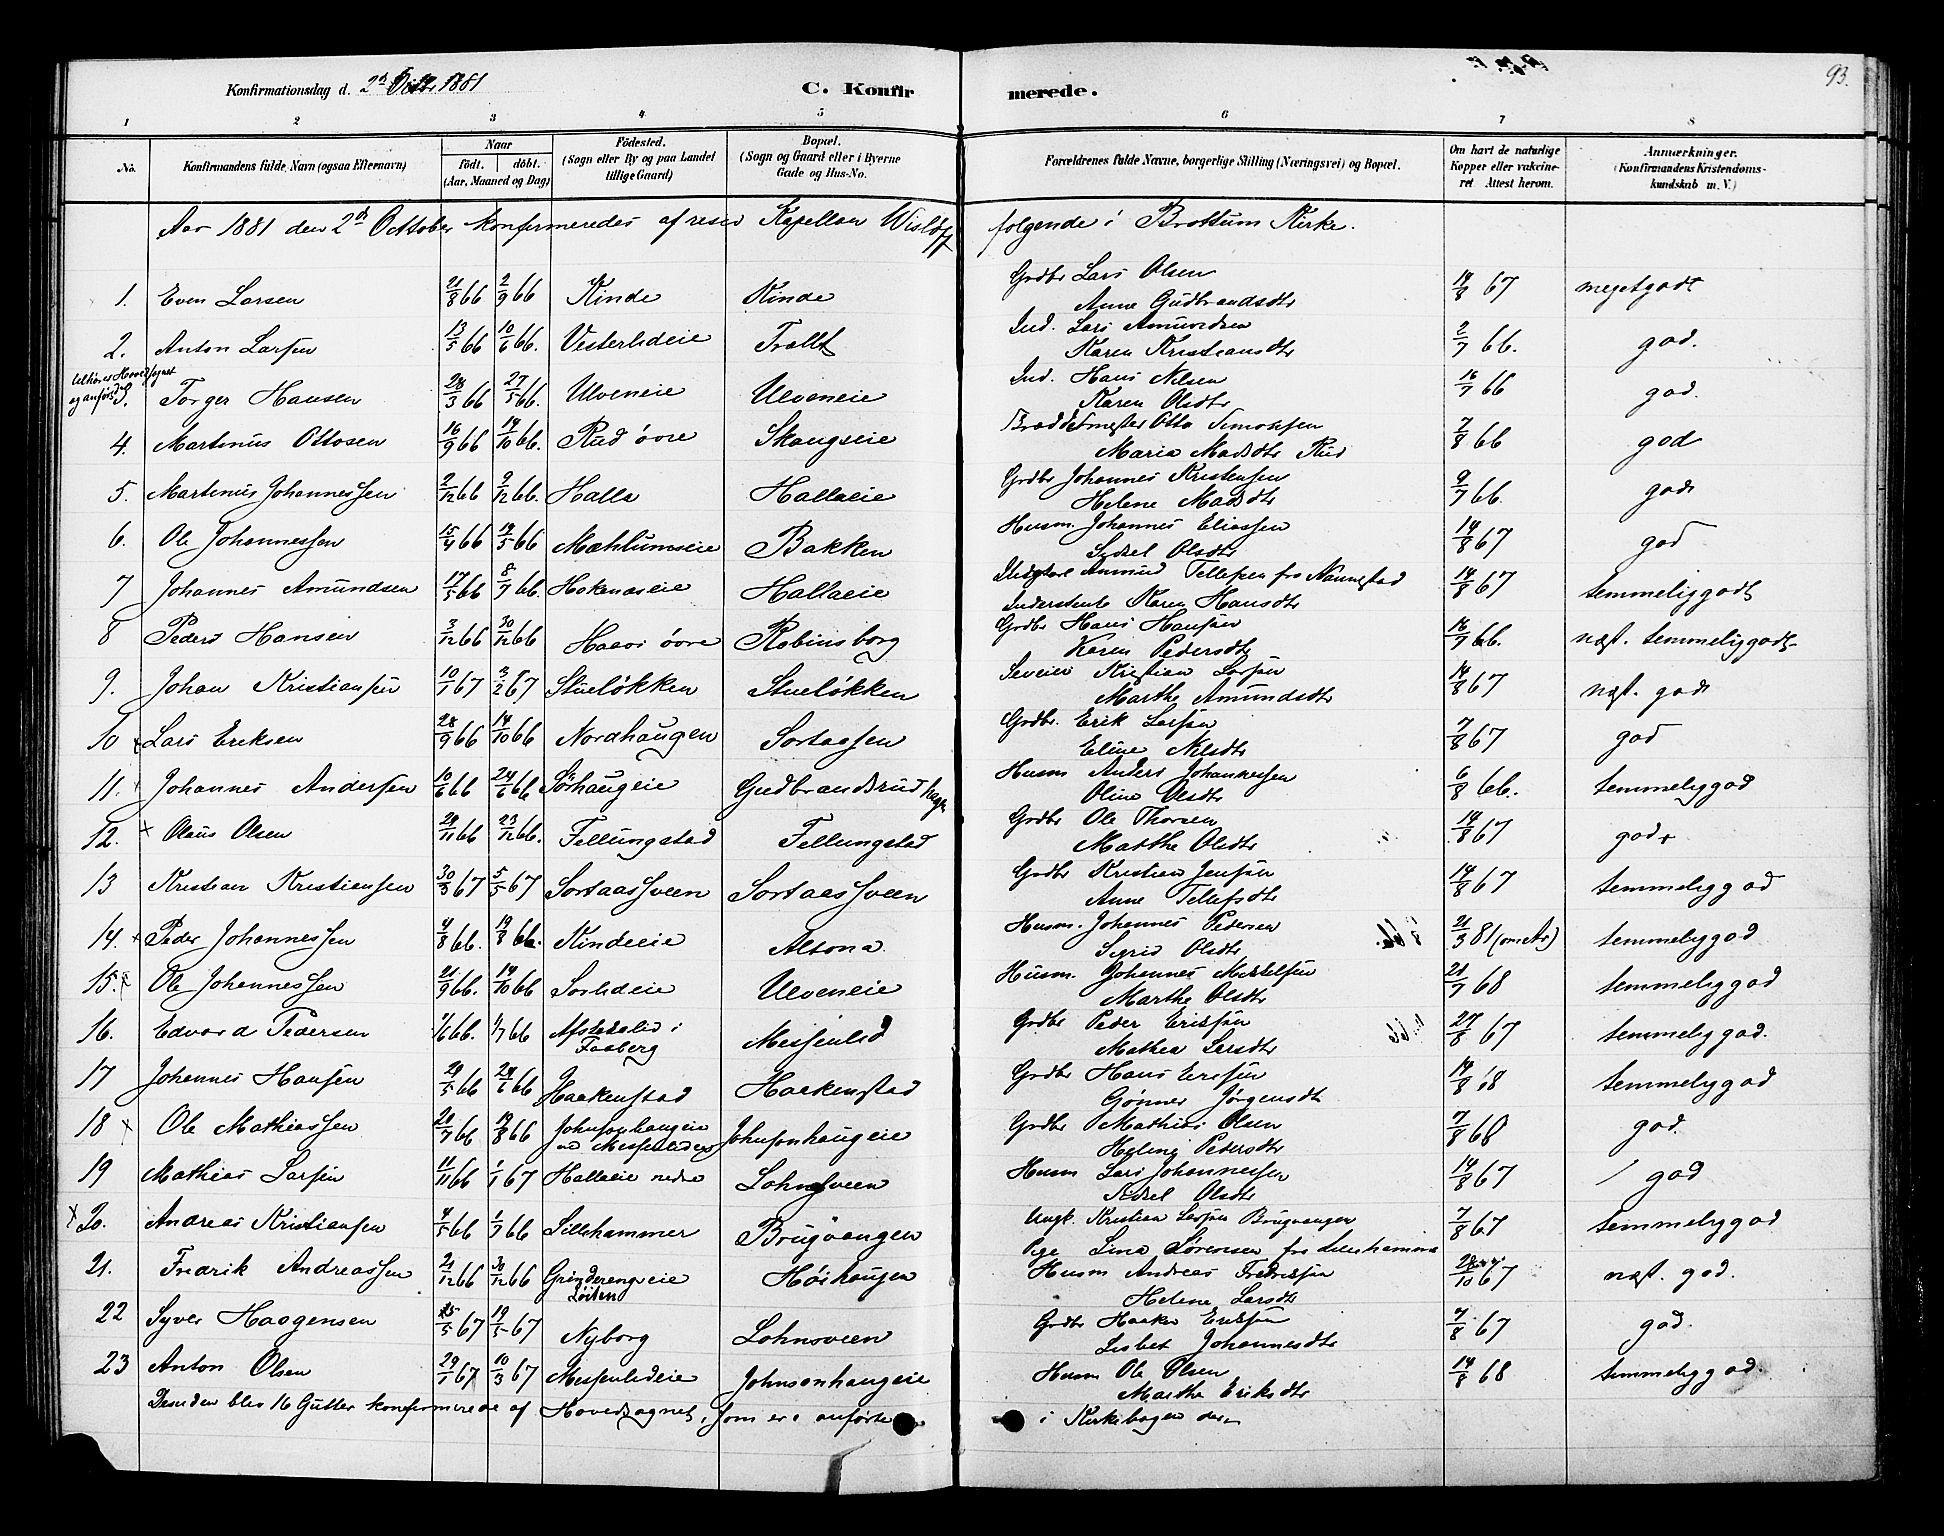 93.
Konfirmationsdag d. 2den Octbr 1881 C. Konfirmerede.
1 2 3 4 5 6 7 8
No. Konfirmandens fulde Navn (ogsaa Efternavn) Naar födt. döbt. (Aar, Maaned og Dag) Födested. (Sogn eller By og paa Landet tillige Gaard) Bopæl. (Sogn og Gaard eller i Byerne Gade og Hus-No. Forældrenes fulde Navne, borgerlige Stilling (Næringsvei) og Bopæl. Om havt de naturlige Kopper eller vakcineret Attest herom. Anmærkninger. (Konfirmandens Kristendomskundskab m. V.)
Aar 1881 den 2den October konfirmeredes af resid Kapellan Wisløff folgende i Brottum Kirke.
1. Even Larsen 21/8 66 2/9 66 Kinde Kinde Grdbr Lars Olsen 14/8 67 megetgodt
Anne Gudbrandsdtr
2. Anton Larsen 13/5 66 10/6 66. Vesterlideie Trollt Ind. Lars Amundsen 2/7 66. god.
Karen Kristiansdtr
tilhører Hovedsognet og anføres der
3. Torger Hansen 28/3 66 27/5 66. Ulveneie Ulveneie Ind. Hans Nilsen 16/7 66 god.
Karen Olsdtr
4. Martinus Ottosen 16/9 66 14/10 66. Rud övre Skougseie Otto Simonsen 7/8 66 god
Maria Madsdtr Rud
5. Martinus Johannessen 2/12 66 9/12 66. Halla Hallaeie Grdbr Johannes Kristensen 9/7 66. god
Helene Madsdtr
6. Ole Johannessen 15/4 66 19/5 66 Mæhlumseie Bakken Husm. Johannes Eliassen 14/8 67 god
Sidsel Olsdtr
7 Johannes Amundsen 17/5 66 8/7 66. Hokenaseie Hallaeie Amund Tellefsen fra Nannestad 14/8 67 temmeliggodt
Inderstente Karen Hansdtr
8 Peder Hansen 3/12 66 30/12 66 Haave övre Robinsborg Grdbr Hans Hansen 16/7 66. næst. temmeliggodt
Karen Pedersdtr
9. Johan Kristiansen 10/1 67 3/2 67 Stuelökken Stuelökken Kristian Larsen 14/8 67 næst. god
Marthe Amundsdtr
10 x Lars Eriksen 28/9 66 14/10 66 Nordhaugen Sortaasen Grdbr. Erik Larsen 7/8 67 god
Eline Nilsdtr
11. Johannes Andersen 10/6 66 24/6 66 Sörhaugeie Gudbrandsrudhagen Husm Anders Johannessen 6/8 66. temmeliggod
Oline Olsdtr
12. x Olaus Olsen 29/11 66 23/12 66. Fellungstad Fellungstad Grdbr Ole Thorsen 14/8 67 god
Marthe Olsdtr
13 Kristian Kristiansen 30/3 67 5/5 67 Sortaassveen Sortaassveen Grdbr Kristian Jensen 14/8 67 temmeliggod
Anne Tellefsdtr
14. x Peder Johannessen 4/8 66. 19/8 66. Kindeeie Altona Husm. Johannes Pedersen 21/3 81 temmeliggod
Sigrid Olsdtr
15. x Ole Johannessen 21/9 66. 14/10 66 Sorlideie Ulveneie Husm. Johannes Mikkelsen 21/7 68 temmeliggod
Marthe Olsdtr
16. Edvard Pedersen 7/6 66. 1/7 66 i Faaberg Messenlid Grdbr Peder Eriksen 27/8 67 temmeliggod.
Mathea Larsdtr
17 Johannes Hansen 29/5 66 24/6 66 Haakenstad Haakenstad Grdbr Hans Eriksen 14/8 68 temmeliggod
Gönner Jörgensdtr
18 x Ole Mathiassen 20/7 66 19/8 66 Johnsonhaugeie Johnsonhaugeie Grdbr Mathias Olsen 7/8 68 god.
Heline Pedersdtr
19 Mathias Larsen 11/11 66 1/1 67 Hallaeie nedre Lohnsveen Husm Lars Johannessen 14/8 67 god
Sidsel Olsdtr
x 20. Andreas Kristiansen 4/5 66 1/7 66 Lillehammer Brugvangen Ungk. Kristian Larsen Brugvangen 7/8 67 temmeliggod
Pige Lina Sörensen fra Lillehammer
21. Fredrik Andreassen 21/12 66 30/12 66 Grinderengseie Löiten Höihaugen Husm Andreas Fredriksen 28/10 67 næst. god.
Helene Larsdtr
22 Syver Haagensen 25/5 67 19/5 67 Nyborg Lohnsveen Grdbr Haaken Eriksen 7/8 67 god.
Lisbet Johannesdtr
23 Anton Olsen 29/1 67 10/3 67 Messenlideie Johnsonhaugeie Husm Ole Olsen 14/8 68 temmeliggod.
Marthe Eriksdtr
Desuden blev 16 Gutter konfirmerede af Hovedsognet, som ere anförte i Kirkebogen der